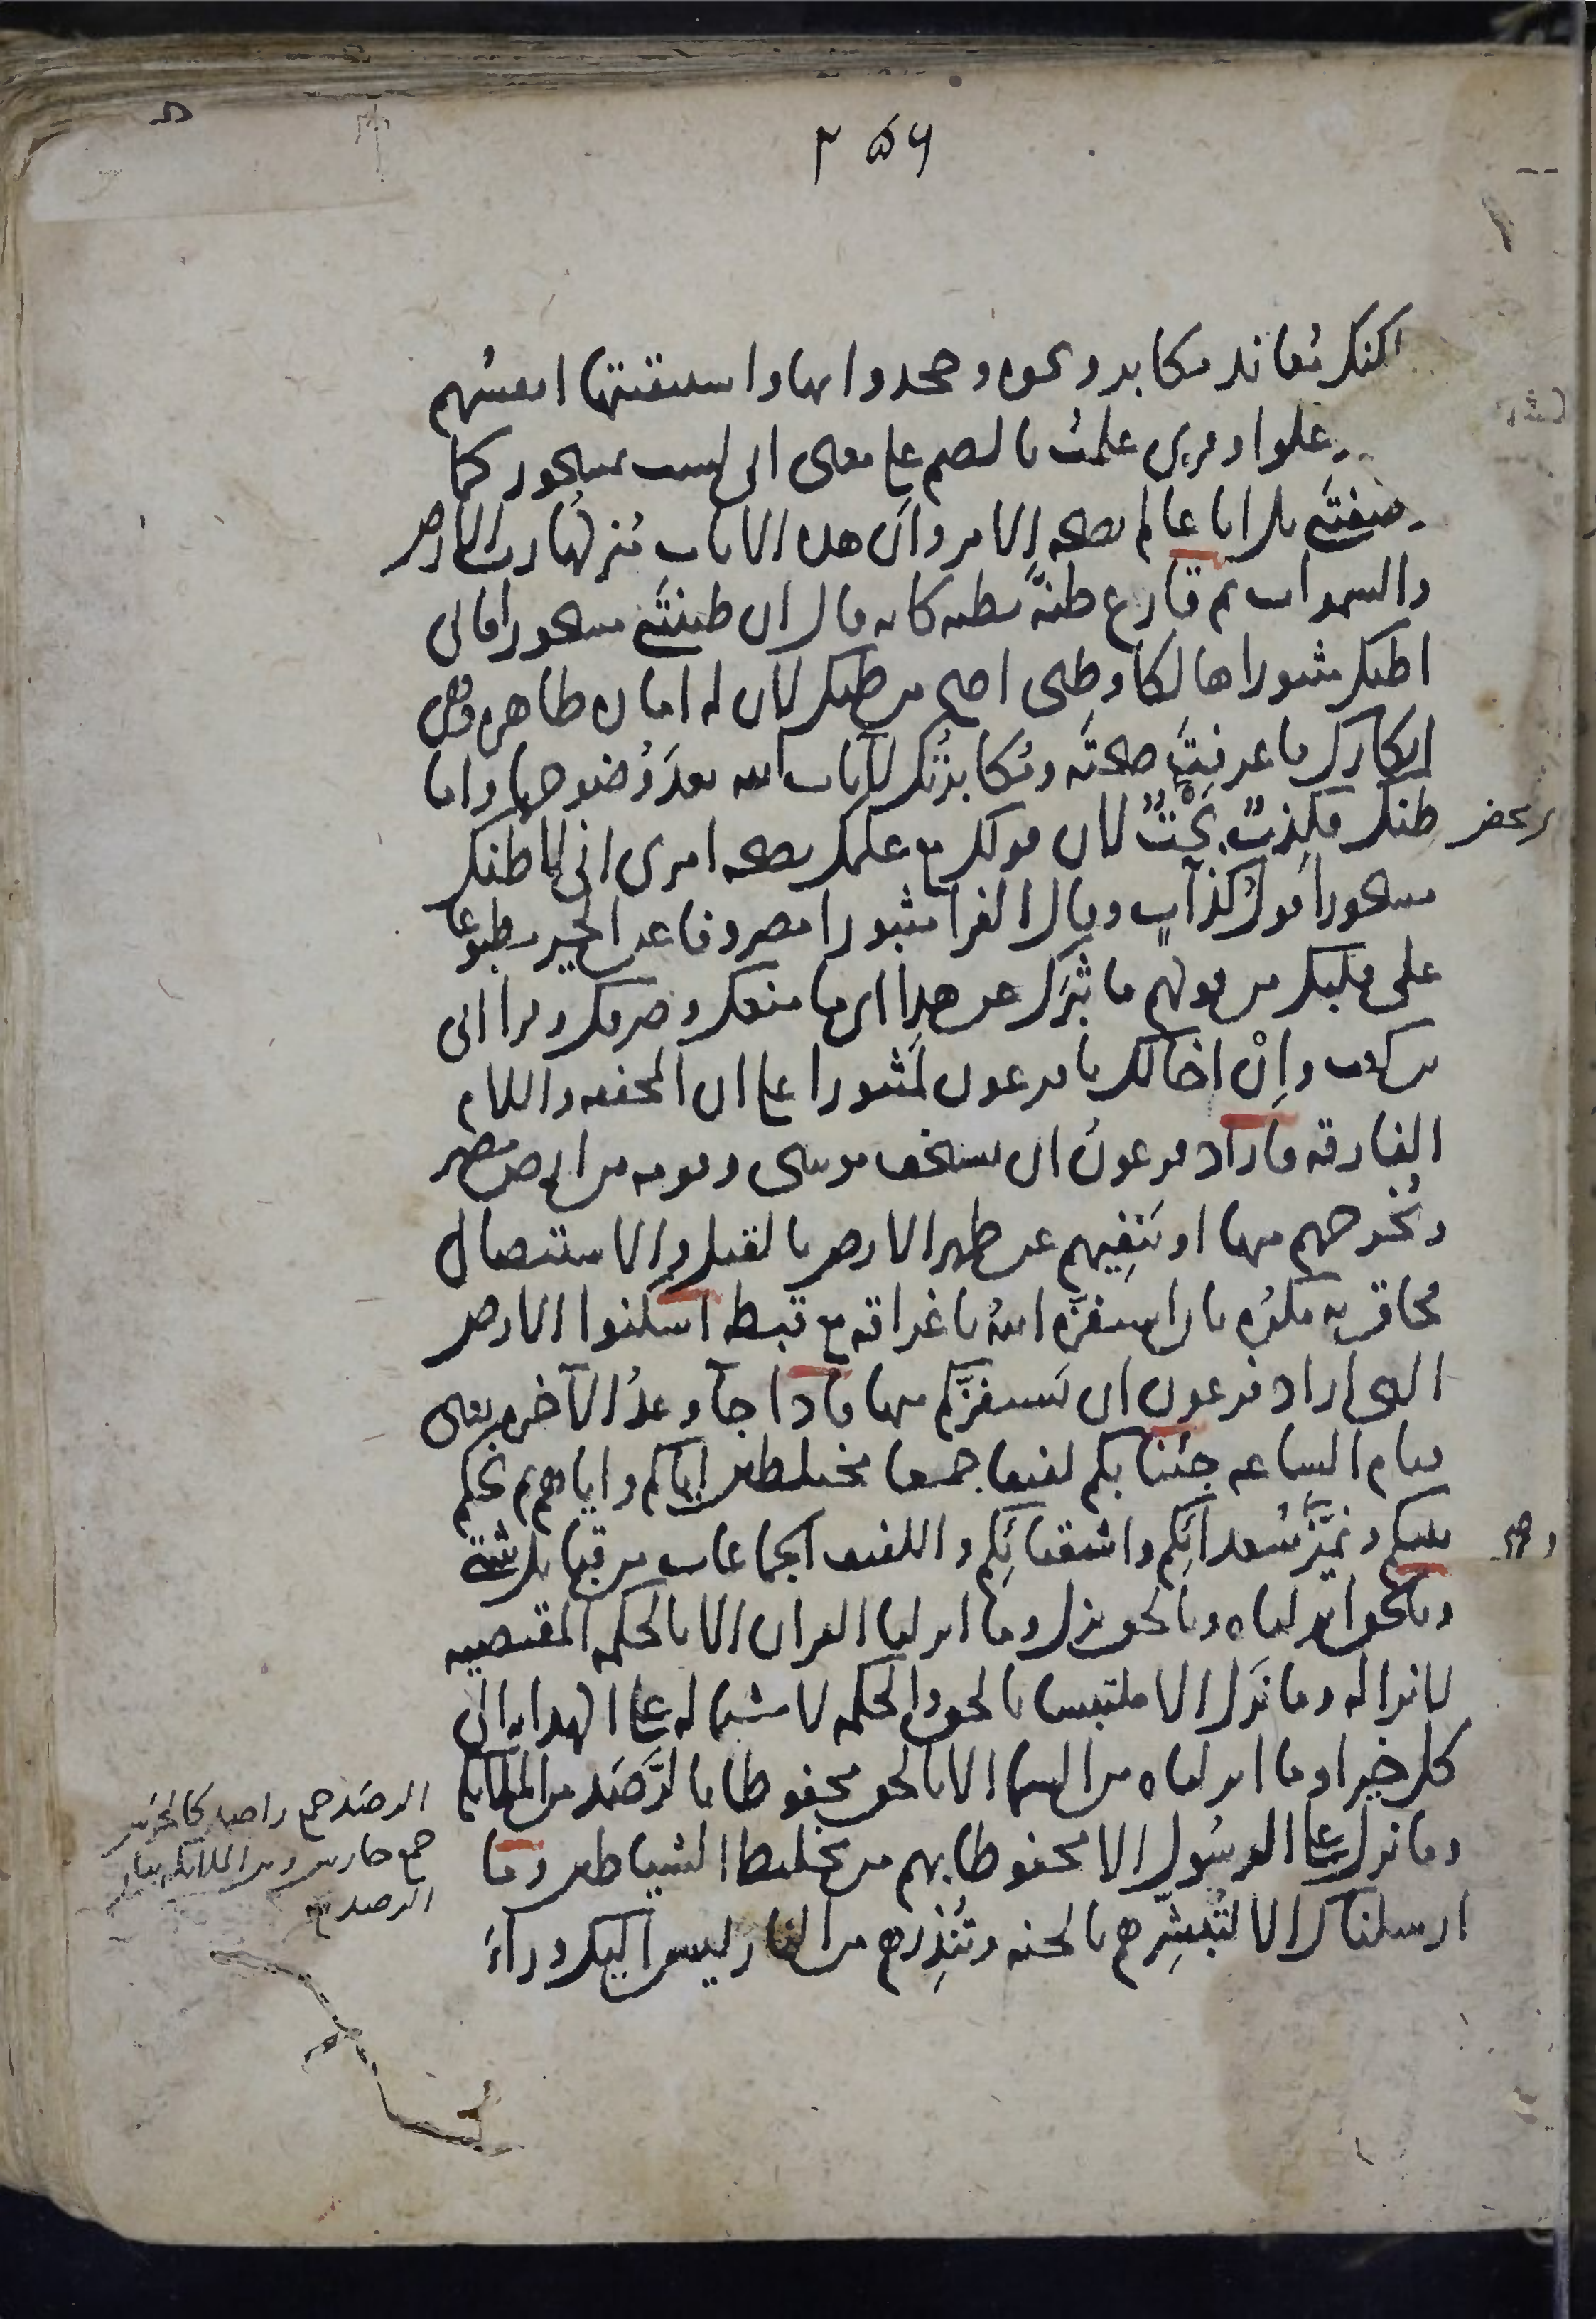 ٢٥٦
لكنك معاند مكابر ونحوه وجحدوا بها واستيقنتها انفسهم
وعلوا وقرئ علمتُ بالضم على معنى انى لست بمسحور كما
وصفتنى بل انا عالم بصحة الامر وان هذه الايات منزلها رب الارض
والسموات ثم قارع ظنّه بظنه كانه قال ان ظننتنى مسحورا فانى
اظنك مثبورا هالكا وظنى اصح من ظنك لان له امارة ظاهرة وهى
انكارك ما عرفتَ صحتَه ومُكابرتُك لآيات الله بعدَ وُضوحها واما
ظنك فكِذبٌ بَحْتٌ لان قولك مع علمك بصحة امرى انى لاظنك
مسحورا قولُ كذّابٍ وقال الفرا مثبورا مصروفا عن الخير مطبوعا
على قلبك من قولهم ما ثَبَرَك عن هذا اى ما منعك وصرفك وقرا ابى
بن كعب وإنْ اخالك يا فرعون لمثبورا على ان المخففة واللام
الفارقة فاراد فرعونُ ان يستخف موسى وقومه من ارض مصر
ويُخرجهم منها او يَنفِيهم عن ظهر الارض بالقتل والاستئصال
فحاق به مكرُه بان استفزّه اللهُ باغراقه مع قبطه اسكنوا الارض
التى اراد فرعون ان يَستفزَّكم منها فاذا جآ وعدُ الآخرة يعنى
قيام الساعة جئنا بكم لفيفا جمعا مختلطين اياكم واياهم ثم نحكم
بينكم ونُمَيِّز سُعدائَكم واشقيائَكم واللفيف الجماعات من قبايل شتى
وبالحق انزلناه وبالحق نزل وما انزلنا القران الا بالحكمة المقتضية
لانزاله وما نَزَل الا ملتبسا بالحق والحكمة لاشتماله على الهداية الى
كل خير او ما انزلناه من السما الا بالحق محفوظا بالرَّصَد من الملائكة
وما نزل على الرسُول الا محفوظا بهم من تخليط الشياطين وما
ارسلناك الا لتُبشِّرهم بالجنة وتُنذِرهم من النار ليس اليك ورآءَ
الرصَد جمع راصد كالحرس
جمع حارس
الرصد